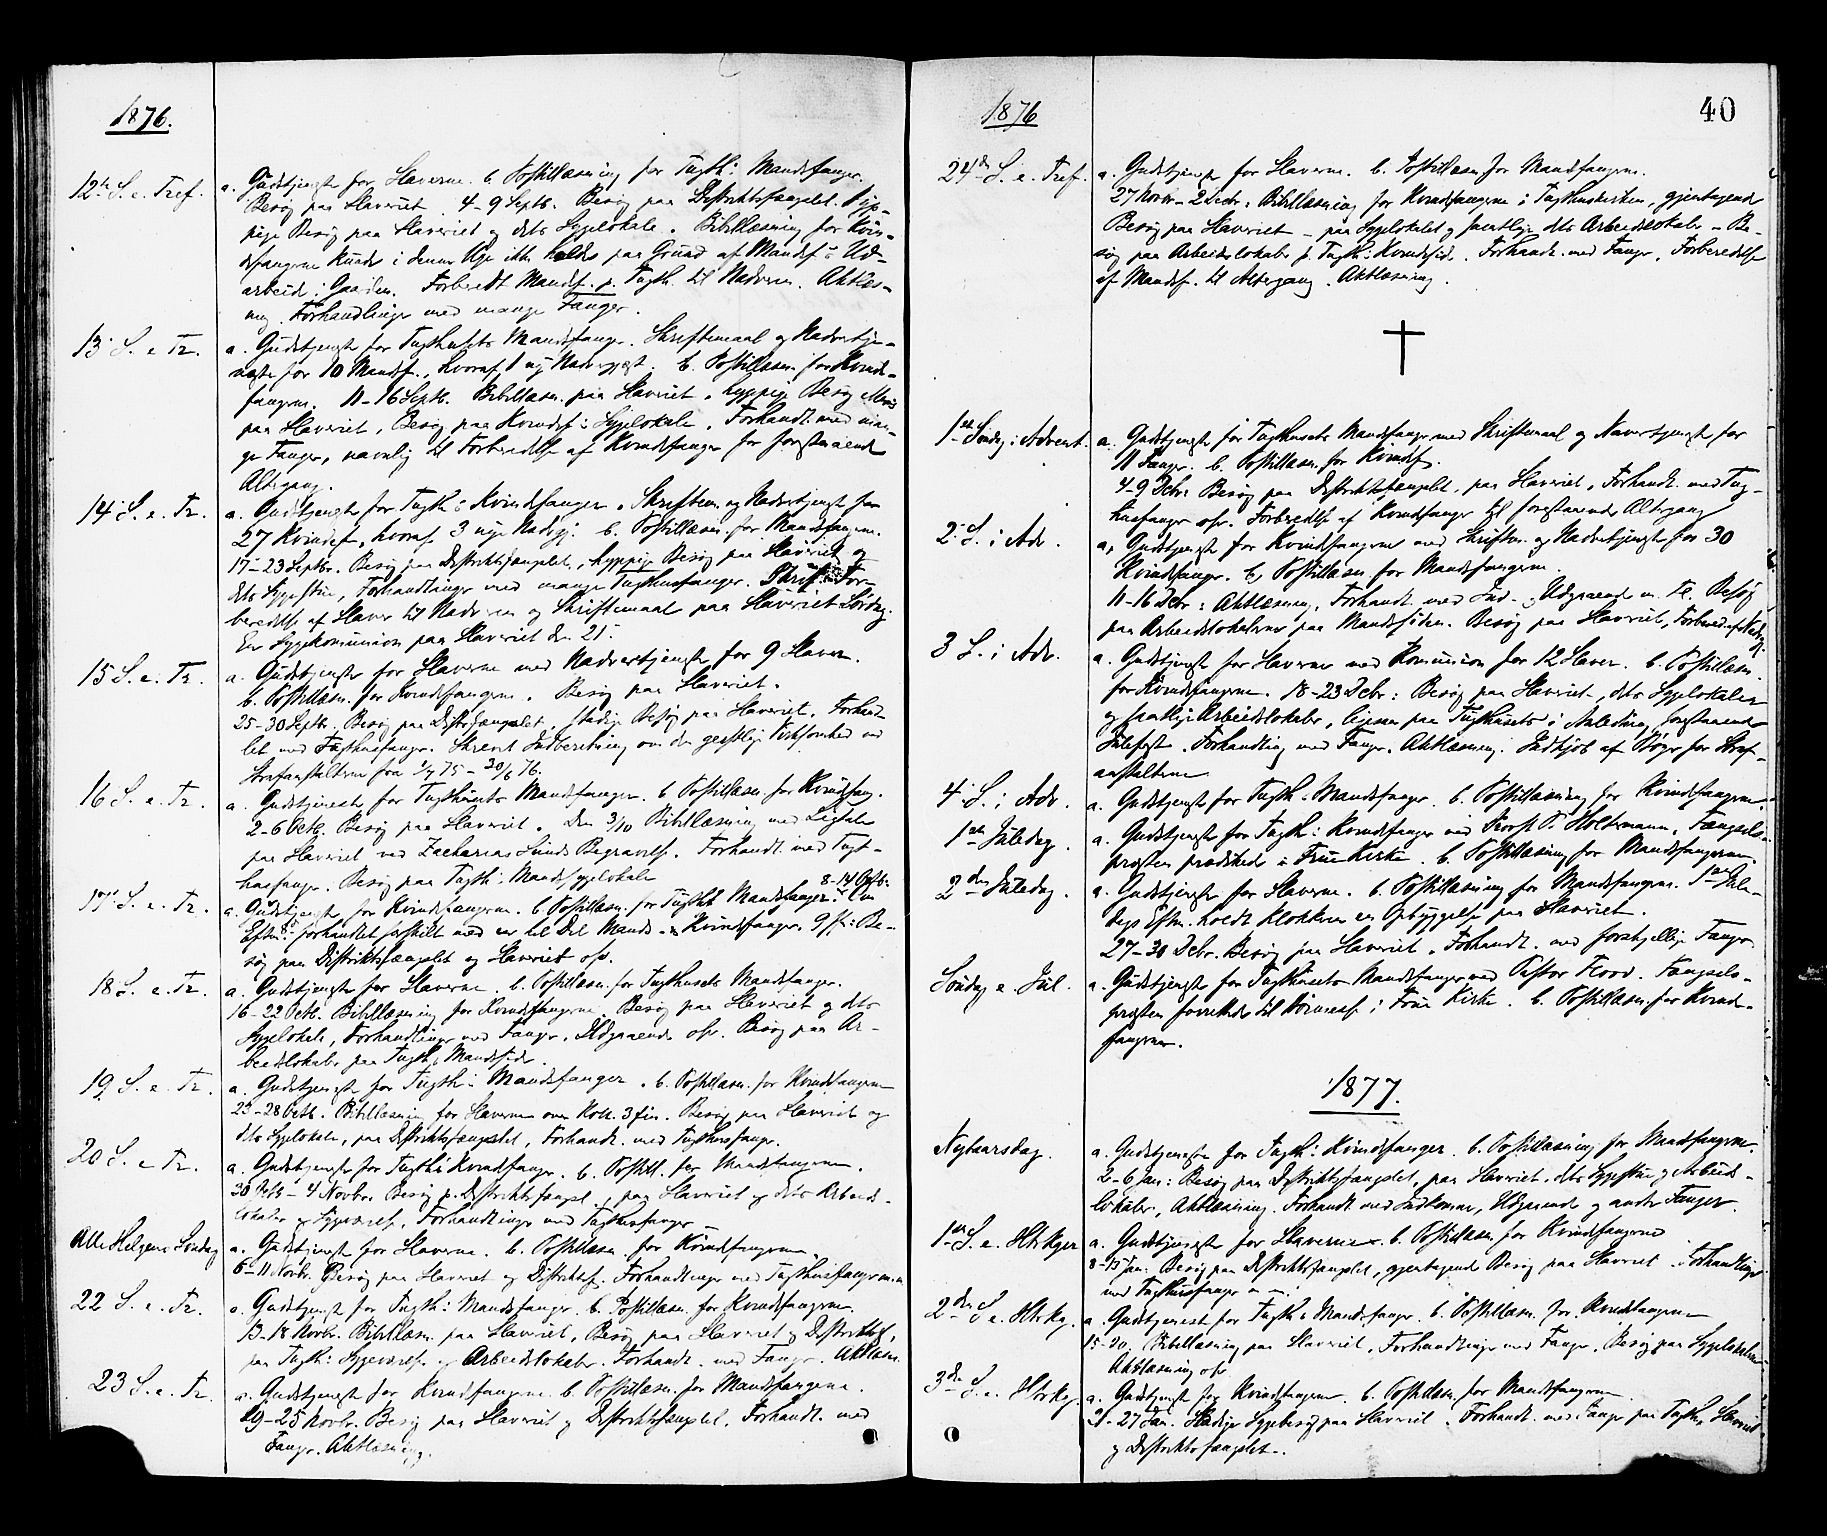 1876.
12te S. e. Tref.
a. Gudstjeneste for Slaverne. b. Postillæsning for Tugth: Mandsfanger.
Besøg paa Slaveriet. 4-9 Septb. Besøg paa Distriktsfængslet. Hyp-
pige Besøg paa Slaveriet og dets Sygelokale. Bibellæsning for Kvin-
desfangerne kunde i denne Uge ikke holdes paa Grund af Mandsf: Ud-
arbeid i Gaarden. Forberedt Mandsf. p. Tugth. til Nadveren. Aktlæs-
ning. Forhandlinger med mange Fanger.
13 S. e Tr.
a. Gudstjeneste for Tugthusets Mandsfanger. Skriftemaal og Nadvertje-
neste for 10 Mandsf., hvoraf 1 ny Nadvergjest. b. Postillæsn. for Kvinds-
fangerne. 11-16 Septb. Bibellæsn. paa Slaveriet, hyppige Besøg
paa Slaveriet, Besøg paa Kvindesf: Sygelokale. Forhandl. med man-
ge Fanger, navnlig til Forberedelse af Kvindsfanger for forestaaende
Altergang.
14 S. e. Tr.
a. Gudstjeneste for Tugth: Kvindsfanger. Skriftem. og Nadvertjeneste for
27 Kvindef, hvoraf 3 nye Nadvgj. b. Postillæsn. for Mandsfangerne.
17-23 Septbr. Besøg paa Distriktsfængslet, hyppige Besøg paa Slaveriet og
dets Sygestue, Forhandlinger med mange Tugthusfanger. For-
beredelse af Slaver til Nadveren og Skriftemaal paa Slaveriet Lørdag.
En Sygekomunion paa Slaveriet den 21.
15 S. e. Tr.
a. Gudstjeneste for Slaverne med Nadvertjeneste for 9 Slaver.
b. Postillæsn. for Kvindsfangerne. Besøg paa Slaveriet.
25-30 Septb. Besøg paa Distrfængslet, stadige Besøg paa Slaveriet. Forhand-
let med Tugthusfanger. Skrevet Indberetning om den geistlige Virksomhed ved
Strafanstalterne fra 1/7 75 - 30/6 76.
16 S. e. Tr.
a. Gudstjeneste for Tugthusets Mandsfanger. b. Postillæsn. for Kvindsfang.
2-6 Octb. Besøg paa Slaveriet. Den 3/10 Bibellæsning med Ligtale
paa Slaveriet ved Zacharias Sunds Begravelse. Forhandl. med Tugt-
husfanger. Besøg paa Tugth: Mandssygelokale
17de S. e. Tr.
8-14 Octb.
a. Gudstjeneste for Kvindfangerne. b. Postillæsn. for Tugthus Mandsfanger. Om
Eftm: forhandlet særskilt med en hel Del Mands- og Kvindsfanger. Be-
søg paa Distriktsfængslet og Slaveriet osv.
18 S. e. Tr.
a. Gudstjeneste for Slaverne. b. Postillæsn. for Tugthusets Mandsfanger.
16-22 Octb. Bibellæsning for Kvindsfangerne. Besøg paa Slaveriet og dets
Sygelokale, Forhandlinger med Fanger. Udgaaende osv. Besøg paa Ar-
beidslokaler paa Tugth: Mandsside.
19. S. e. Tr.
a. Gudstjeneste for Tugth: Mandsfanger. b. Postillæsn. for Kvindsfangerne
23-28 Octb. Bibellæsning for Slaverne over Koll. 3 fin. Besøg paa Slaveriet og
dets Sygelokale, paa Distriktsfængslet, Forhandl. med Tugthusfanger.
20 S. e. Tr.
a. Gudstjeneste for Tugth: Kvindsfanger. b. Postill. for Mandsfangerne.
30 Octb - 4 Novbr. Besøg p. Distriktsfængsl, paa Slaveriet og dets Arbeids-
lokaler og Sygeværelse. Forhandlinger med Tugthusfanger -
Alle Helgens Søndag
a. Gudstjeneste for Slaverne. b. Postillæsn. for Kvindfangerne.
6-11 Novbr. Besøg paa Slaveriet og Distriktsf. Forhandlinger med Tugthusfangerne.
22 S. e. Tr.
a. Gudstjeneste for Tugth: Mandsfanger. b. Postillæsn. for Kvindfangerne.
13-18 Novbr. Bibellæsn. paa Slaveriet, Besøg paa Slaveriet og Distriktsf.,
paa Tugth: Sygeværelse og Arbeidslokaler. Forhandl. med Fanger. Aktlæsn.
23 S. e. Tr.
a. Gudstjeneste for Kvindfangerne. b. Postillæsn. for Mandfangerne.
19-25 Novbr. Besøg paa Slaveriet og Distriktsfængslet. Forhandl. med
Fanger. Aktlæsning.
1876
40
24de S. e. Tref.
a. Gudstjeneste for Slaverne. b. Postillæsn. for Mandsfangerne.
27 Novbr - 2 Decbr: Bibellæsning for Kvindfangerne i Tugthuskirken, gjentagende
Besøg paa Slaveriet - paa Sygelokalet og samtlige dets Arbeidslokaler - Be-
søg paa Arbeidslokaler p. Tugth: Kvindeside. Forhandl. med Fanger. Forberedelse
af Mandsf. til Altergang. Aktlæsning.
1ste Søndag i Advent.
a. Gudstjeneste for Tugthusets Mandsfanger med Skriftemaal og Navertjeneste for
11 Fanger. b. Postillæsn. for Kvindf.
4-9 Decbr Besøg paa Distriktsfængslet, paa Slaveriet, Forhandl. med Tugt-
husfanger osv. Forberedelse af Kvindsfanger til forestaaende Altergang
2. S. i Adv.
a, Gudstjeneste for Kvindfangerne med Skriftem. og Nadvertjeneste for 30
Kvindsfanger. b, Postillæsn. for Mandsfangerne.
11-16 Decbr: Aktlæsning, Forhandl. med Ind- og Udgaaende m. Fl. Besøg
paa Arbeidslokalerne paa Mandssiden. Besøg paa Slaveriet, Forbered. af
3 S. i Adv.
a. Gudstjeneste for Slaverne med Komunion for 12 Slaver. b. Postillæsn.
for Kvindfangerne. 18-23 Decbr: Besøg paa Slaveriet, dets Sygelokaler
og samtlige Arbeidslokaler, ligesom paa Tugthusets i Anledning forestaaende
Julefest. Forhandling med Fanger. Aktlæsning. Indkjøb af Bøger for Straf-
anstalterne
4. S. i Adv.
a. Gudstjeneste for Tugth: Mandsfanger. b. Postillæsning for Kvindsfangerne.
1ste Juledag.
a. Gudstjeneste for Tugth: Kvindsfanger ved Provst P. Holtermann. Fængsels-
presten prædikede i Frue Kirke. b. Postillæsning for Mandsfangerne.
2den Juledag.
a. Gudstjeneste for Slaverne. b. Postillæsning for Mandsfangerne. 1ste Jule-
dags Eftm. holdt Klokkeren en Opbyggelse paa Slaveriet.
27-30 Decbr. Besøg paa Slaveriet. Forhandl. med forskjellige Fanger.
Søndag e. Jul.
a. Gudstjeneste for Tugthusets Mandsfanger ved Pastor Flood. Fængsels-
presten forrettede til Høimesse i Frue Kirke. b. Postillæsn. for Kvinds-
fangerne.
1877.
Nytaarsdag.
a. Gudstjenesten for Tugth: Kvindsfanger. b. Postillæsning for Mandsfangerne.
2-6 Jan: Besøg paa Distriktsfængslet, paa Slaveriet, dets Sygestue og Arbeids-
lokaler, Aktlæsning. Forhandl. med Indkomne, Udgaaende og andre Fanger.
1ste S. e. H3rkger
a. Gudstjeneste for Slaverne. b. Postillæsn. for Kvindfangerne
8-13 Jan. Besøg paa Distriktsfængslet, gjentagende Besøg paa Slaveriet. Forhandlinger
med Tugthusfanger
2den S. e. H3rkg.
a. Gudstjenest for Tugth: Mandsfanger. b. Postillæsn. for Kvindfangerne
15-20. Bibellæsning paa Slaveriet, Forhandlinger med Fanger. Besøg paa Sygelokalerne
Aktlæsning osv
3die S. e. H3rkg.
a. Gudstjeneste for Kvindfangerne b. Postillæsn. for Mandfangerne
21-27 Jan. Stadige Sygebesøg paa Slaveriet. Forhandl. med Fanger paa Tugth, Slaveriet
og Distriktsfængslet.